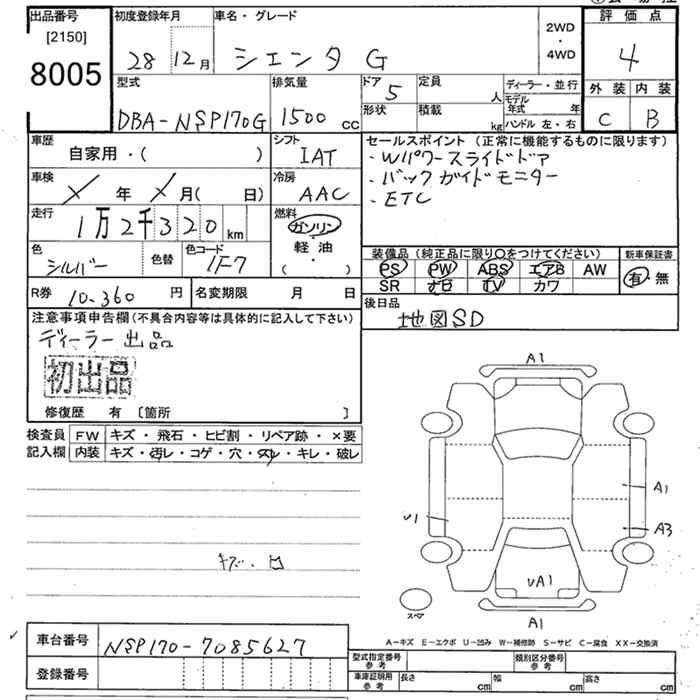 出品番号
[2150]
8005
初度登録年月
28 12月
車名・グレード
シエンタ G
2WD
・
4WD
評価点
4
外装 内装
C B
型式
DBA-NSP170G
排気量
1500 cc
ドア 5
定員 人
形状
積載 kg
ディーラー・並行
モデル年式 年
ハンドル 左・右
車歴
自家用・( )
シフト
IAT
車検
年 月( 日)
冷房
AAC
走行
1万2千320 km
燃料
ガソリン
軽油
( )
色
シルバー
色替
色コード
1F7
R券 10.360 円
名変期限 月 日
セールスポイント (正常に機能するものに限ります)
・Wパワースライドドア
・バックガイドモニター
・ETC
装備品 (純正品に限り○をつけてください)
PS PW ABS エアB AW
SR ナビ TV カワ
新車保証書
有・無
後日品
地図SD
注意事項申告欄 (不具合内容等は具体的に記入して下さい)
ディーラー出品
初出品
修復歴 有 [箇所 ]
検査員記入欄
FW キズ・飛石・ヒビ割・リペア跡・×要
内装 キズ・汚レ・コゲ・穴・スレ・キレ・破レ
キズ・凹
A1
A1
A3
U1
UA1
A1
スペア
A-キズ E-エクボ U-凹み W-補修跡 S-サビ C-腐食 XX-交換済
車台番号 NSP170-7085627
登録番号
型式指定番号 参考
類別区分番号 参考
車庫証明用 参考
長さ cm 幅 cm 高さ cm